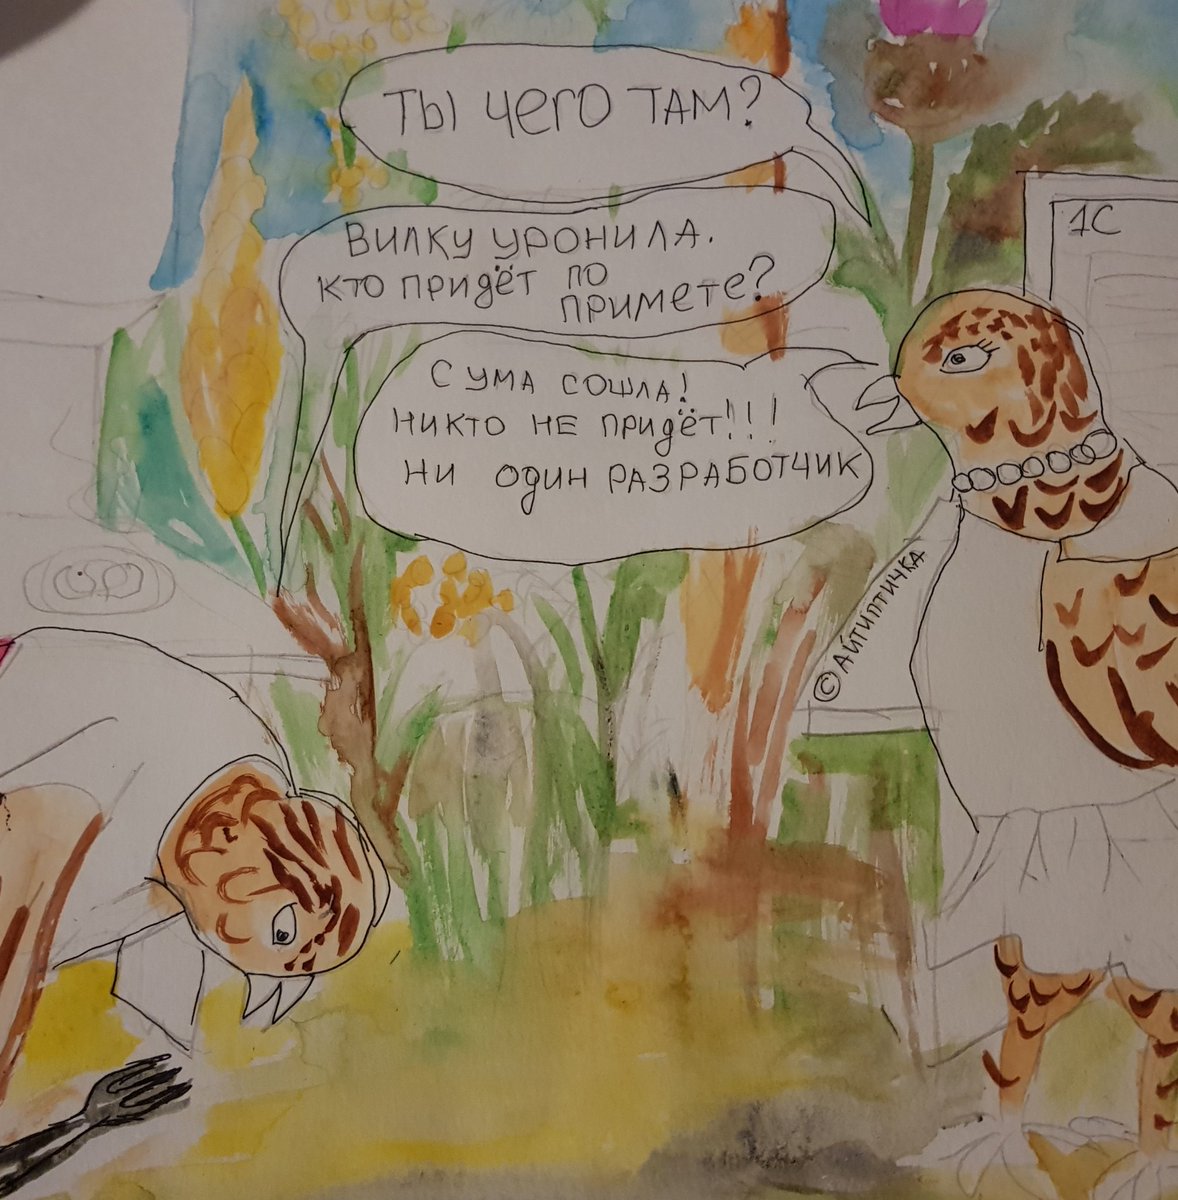 ТЫ ЧЕГО ТАМ?
ВИЛКУ УРОНИЛА.
КТО ПРИДЁТ ПО
ПРИМЕТЕ?
1С
С УМА СОШЛА!
НИКТО НЕ ПРИДЁТ!!!
НИ ОДИН РАЗРАБОТЧИК
© АЙТИПТИЧКА